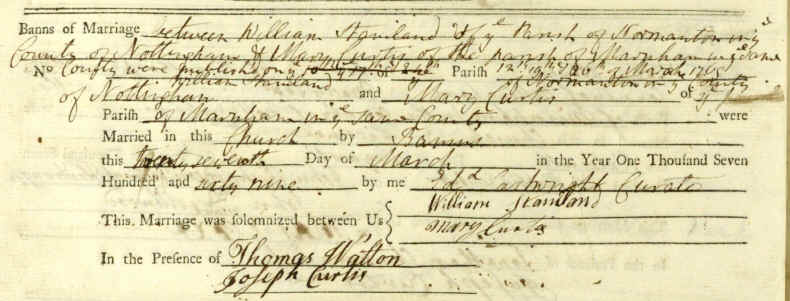 Banns of Marriage between William Staniland of ye Parish of Normanton in ye
County of Nottingham & Mary Curtis of the parish of Marnham in ye same
No County were published on ye of Parish 12th 19th 26th March
William Staniland of Normanton in ye County
of Nottingham and Mary Curtis of ye
Parish of Marnham in ye same County were
Married in this Church by Banns
this twenty seventh Day of March in the Year One Thousand Seven
Hundred and sixty nine by me Edd Cartwright Curate
This Marriage was solemnized between Us { William Staniland
Mary Curtis
In the Presence of Thomas Watton
Joseph Curtis